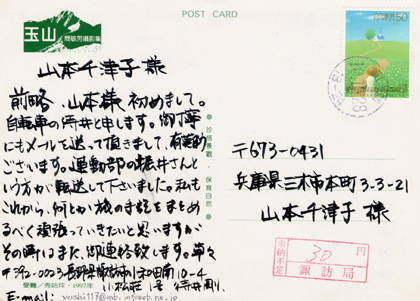 POST CARD
玉山
山本千津子様
前略、山本様初めまして。
自転車の坪井と申します。御丁寧
にもメールを送って頂きまして、有難う
ございます。運動部の堀井さんと
いう方が転送して下さいました。私も
これから、何とか旅の手記をまとめ
るべく頑張っていきたいと思いますが
その時はまた、御連絡致します。草々
〒392-0023 長野県諏訪市小和田南10-4
小松荘
E-mail:
〒673-0431
兵庫県三木市本町3-3-21
山本千津子様
未納不足
30円
諏訪局